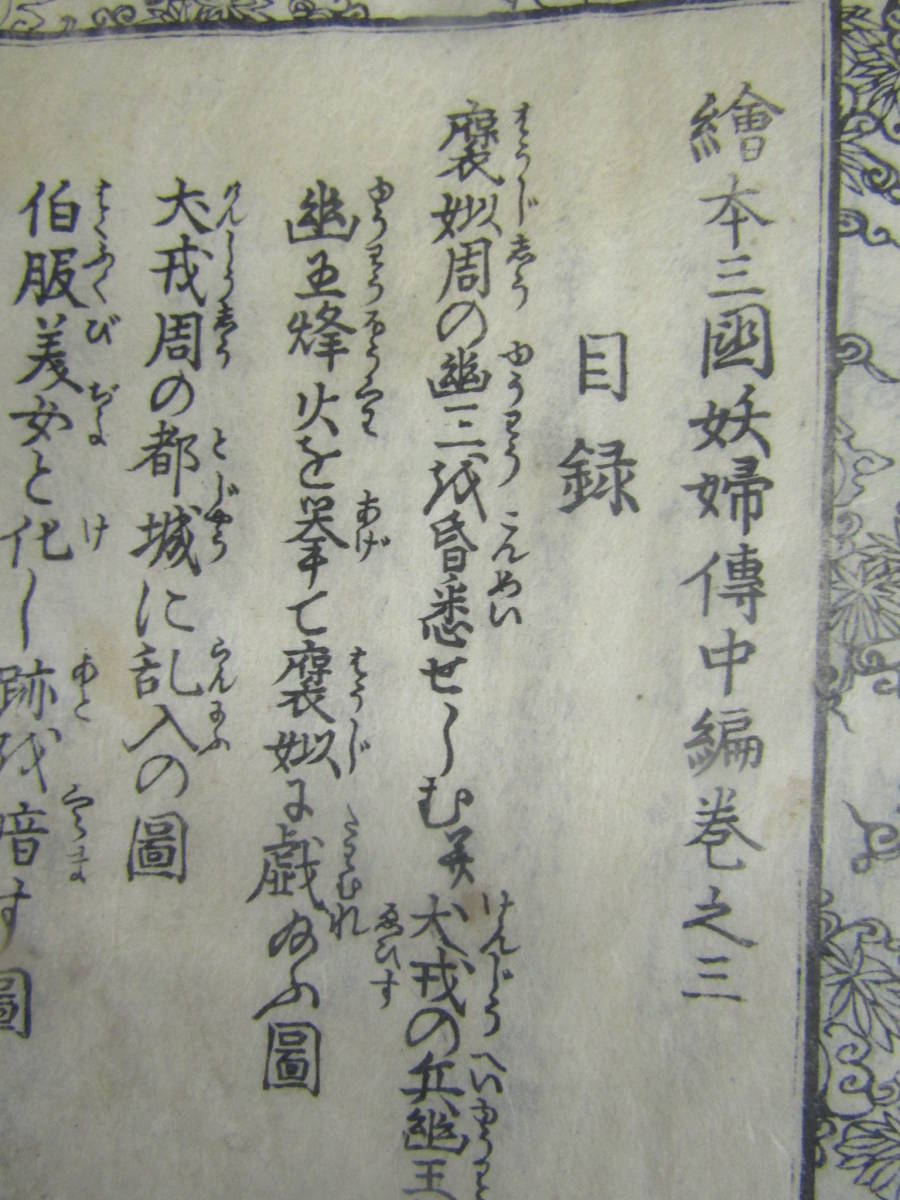 繪本三國妖婦傳中編巻之三
目録
褒姒周の幽王を昏惑せしむ并犬戎の兵幽王
幽王烽火を挙て褒姒に戯給ふ圖
犬戎周の都城に乱入の圖
伯服美女と化し跡を暗す圖